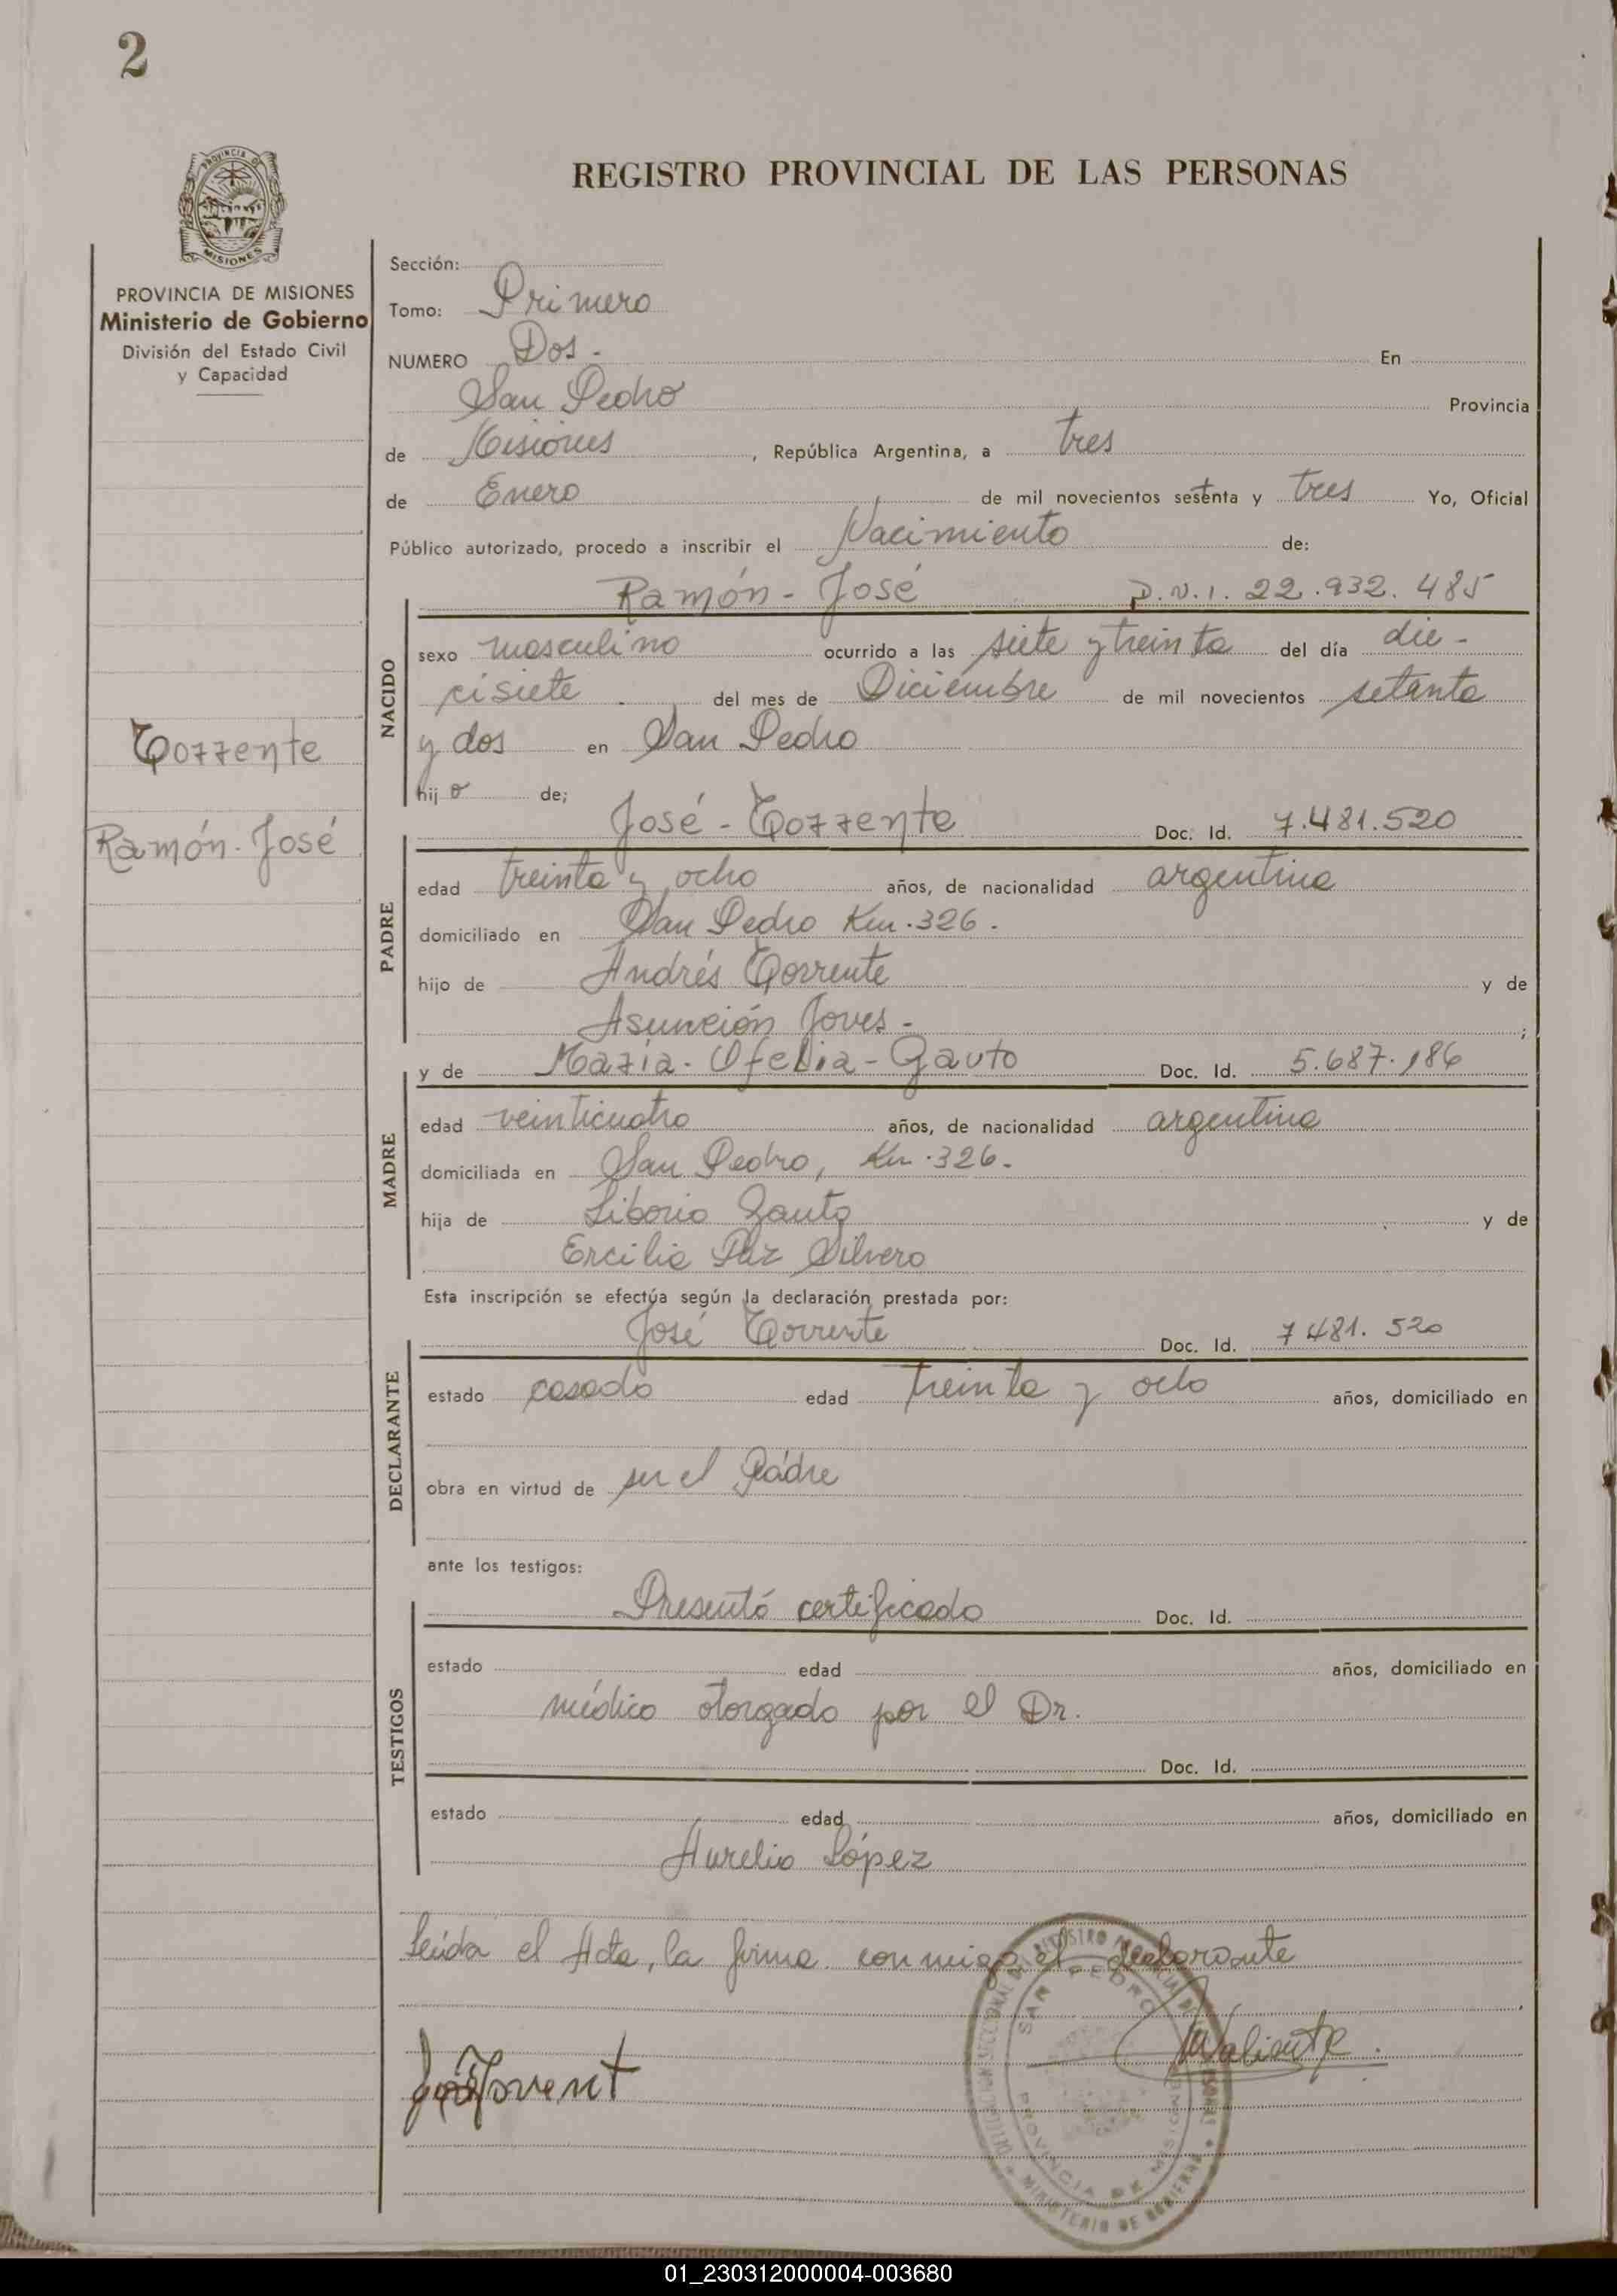 2
REGISTRO PROVINCIAL DE LAS PERSONAS
PROVINCIA DE MISIONES
Ministerio de Gobierno
División del Estado Civil
y Capacidad
Torrente
Ramón-José
Sección:
Tomo: Primero
NUMERO Dos- En
San Pedro Provincia
de Misiones, República Argentina, a tres
de Enero de mil novecientos setenta y tres Yo, Oficial
Público autorizado, procedo a inscribir el Nacimiento de:
Ramón-José D.N.I. 22.932.485
NACIDO
sexo masculino ocurrido a las siete y treinta del día die-
cisiete del mes de Diciembre de mil novecientos setenta
y dos en San Pedro
hijo de;
José-Torrente Doc. Id. 7.481.520
PADRE
edad treinta y ocho años, de nacionalidad argentina
domiciliado en San Pedro Km.326.
hijo de Andrés Torrente y de
Asunción Joves- ;
y de María-Ofelia-Gauto Doc. Id. 5.687.186
MADRE
edad veinticuatro años, de nacionalidad argentina
domiciliada en San Pedro, Km.326.
hija de Liborio Gauto y de
Ercilia Paz Silvero
Esta inscripción se efectúa según la declaración prestada por:
José Torrente Doc. Id. 7481.520
DECLARANTE
estado casado edad treinta y ocho años, domiciliado en
obra en virtud de ser el Padre
ante los testigos:
Presentó certificado Doc. Id.
TESTIGOS
estado edad años, domiciliado en
médico otorgado por el Dr.
Doc. Id.
estado edad años, domiciliado en
Aurelio López
Leída el Acta, la firma conmigo el declarante
SAN PEDRO
PROVINCIA DE MISIONES
MINISTERIO DE GOBIERNO
01_230312000004-003680